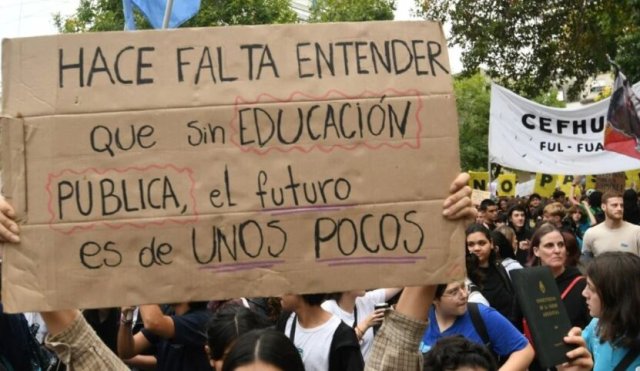 HACE FALTA ENTENDER
QUE sin EDUCACIÓN
PÚBLICA, el futuro
es de UNOS POCOS
CEFHU
FUL - FUA